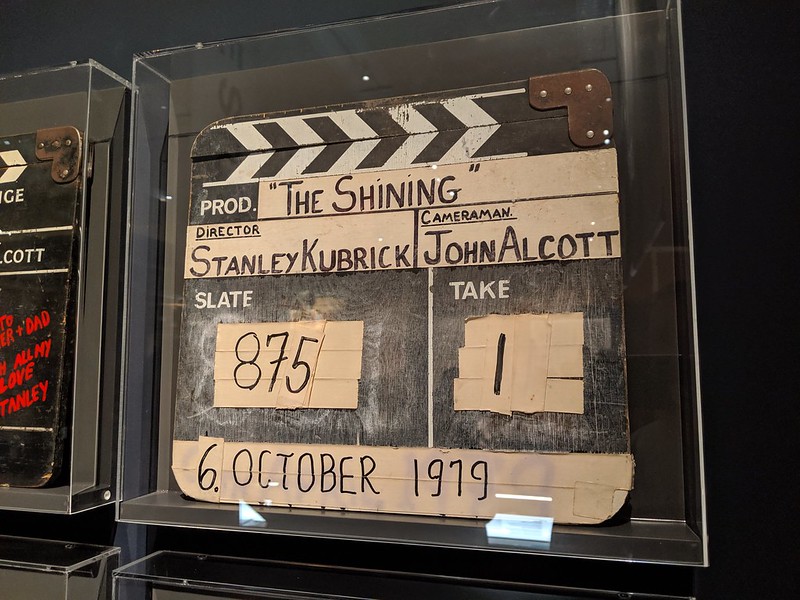 NGE
LCOTT
TO
ER + DAD
H ALL MY
LOVE
STANLEY
PROD. "THE SHINING"
DIRECTOR
STANLEY KUBRICK
CAMERAMAN.
JOHN ALCOTT
SLATE
875
TAKE
1
6. OCTOBER 1979